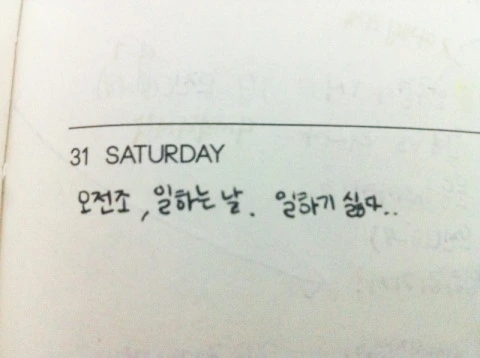 31 SATURDAY
오전조, 일하는 날. 일하기 싫다..